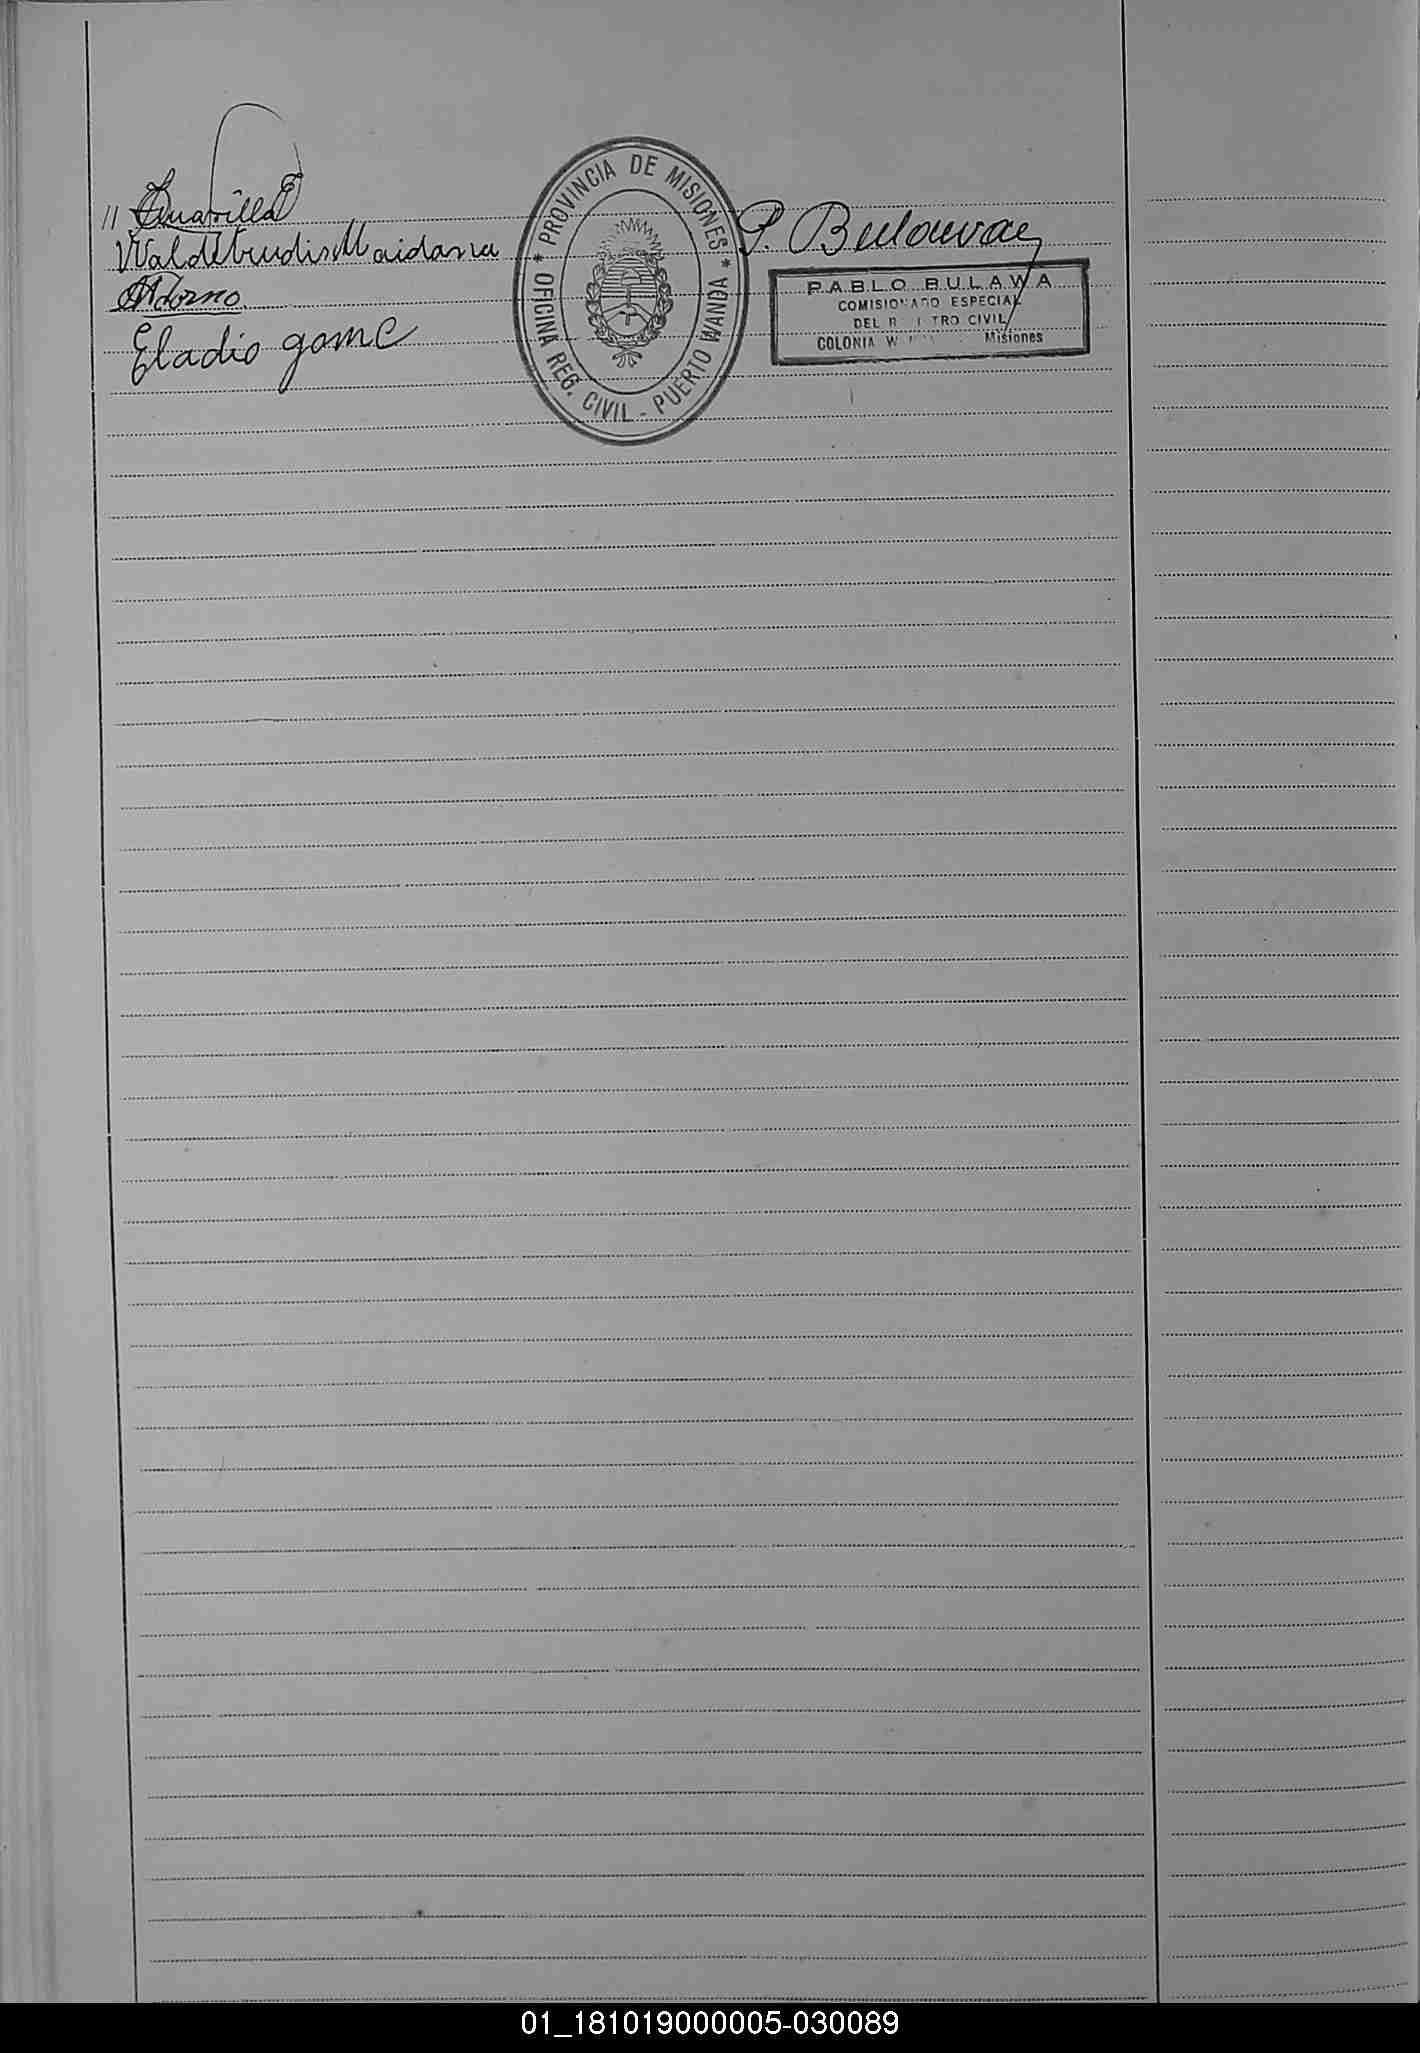 //
Waldetrudis Maidana
Adorno
Eladio gome
* PROVINCIA DE MISIONES *
OFICINA REG. CIVIL - PUERTO WANDA
P. Bulawa
PABLO BULAWA
COMISIONADO ESPECIAL
DEL R I TRO CIVIL
COLONIA W Misiones
01_181019000005-030089